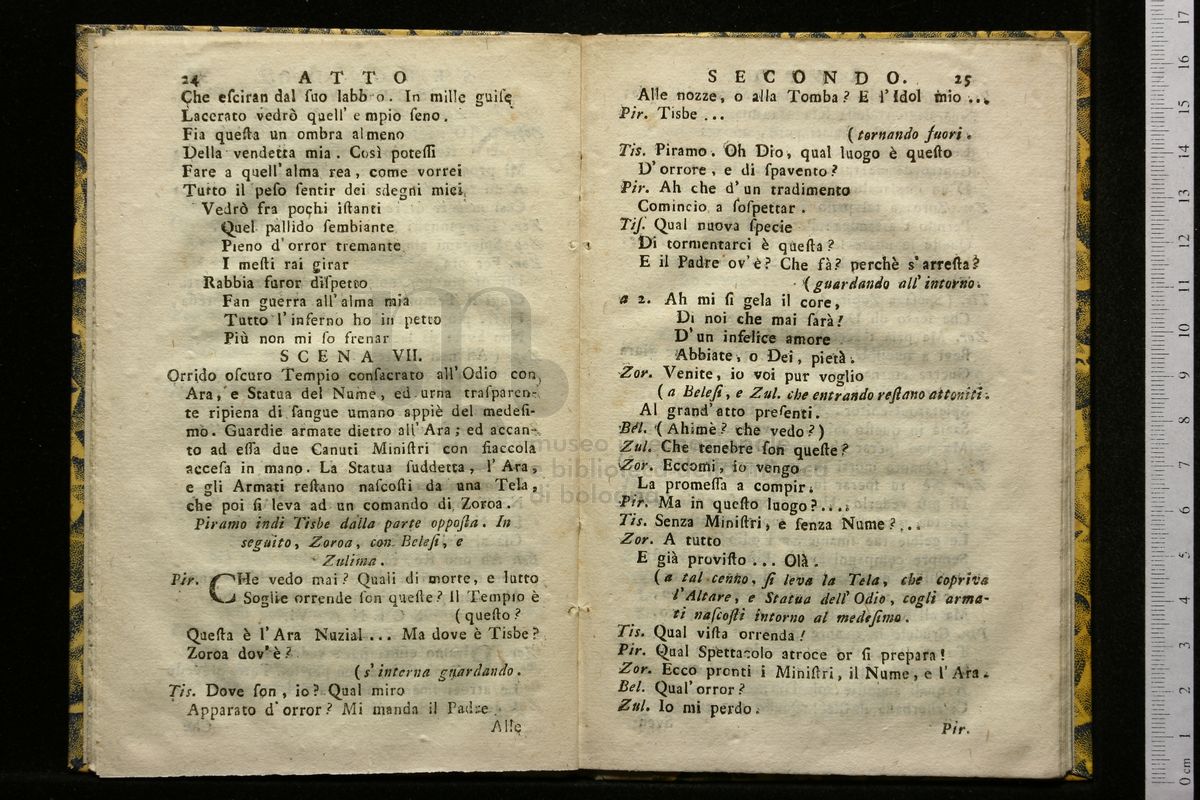 24 ATTO
Che esciran dal suo labbro. In mille guise
Lacerato vedrò quell' empio seno.
Fia questa un ombra almeno
Della vendetta mia. Così potessi
Fare a quell' alma rea, come vorrei
Tutto il peso sentir dei sdegni miei
Vedrò fra pochi istanti
Quel pallido sembiante
Pieno d'orror tremante
I mesti rai girar
Rabbia furor dispetto
Fan guerra all'alma mia
Tutto l'inferno ho in petto
Più non mi so frenar
SCENA VII.
Orrido oscuro Tempio consacrato all'Odio con
Ara, e Statua del Nume, ed urna trasparen-
te ripiena di sangue umano appiè del medesi-
mo. Guardie armate dietro all'Ara; ed accan-
to ad essa due Canuti Ministri con fiaccola
accesa in mano. La Statua suddetta, l'Ara,
e gli Armati restano nascosti da una Tela,
che poi si leva ad un comando di Zoroa.
Piramo indi Tisbe dalla parte opposta. In
seguito, Zoroa, con Belesi, e
Zulima.
Pir. CHe vedo mai? Quali di morte, e lutto
Soglie orrende son queste? Il Tempio è
(questo?
Questa è l'Ara Nuzial... Ma dove è Tisbe?
Zoroa dov'è?
(s'interna guardando.
Tis. Dove son, io? Qual miro
Apparato d'orror? Mi manda il Padre
Alle
SECONDO. 25
Alle nozze, o alla Tomba? E l'Idol mio...
Pir. Tisbe...
(tornando fuori.
Tis. Piramo. Oh Dio, qual luogo è questo
D'orrore, e di spavento?
Pir. Ah che d'un tradimento
Comincio a sospettar.
Tis. Qual nuova specie
Di tormentarci è questa?
E il Padre ov'è? Che fà? perchè s'arresta?
(guardando all'intorno.
a 2. Ah mi si gela il core,
Di noi che mai sarà!
D'un infelice amore
Abbiate, o Dei, pietà.
Zor. Venite, io voi pur voglio
(a Belesi, e Zul. che entrando restano attoniti.
Al grand'atto presenti.
Bel. (Ahimè? che vedo?)
Zul. Che tenebre son queste?
Zor. Eccomi, io vengo
La promessa a compir.
Pir. Ma in questo luogo?....
Tis. Senza Ministri, e senza Nume?...
Zor. A tutto
E già provisto... Olà.
(a tal cenno, si leva la Tela, che copriva
l'Altare, e Statua dell'Odio, cogli arma-
ti nascosti intorno al medesimo.
Tis. Qual vista orrenda!
Pir. Qual Spettacolo atroce or si prepara!
Zor. Ecco pronti i Ministri, il Nume, e l'Ara.
Bel. Qual'orror?
Zul. Io mi perdo.
Pir.
museo internazionale
e biblioteca della musica
di bologna
0 cm 1 2 3 4 5 6 7 8 9 10 11 12 13 14 15 16 17